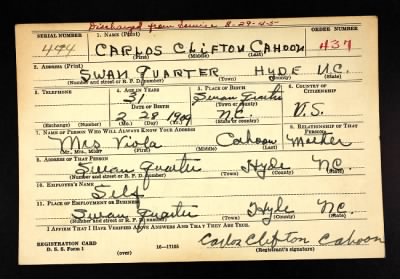 Discharged from Service 8-29-45
SERIAL NUMBER 1. NAME (Print) ORDER NUMBER
494 CARLOS CLIFTON CAHOON 437
(First) (Middle) (Last)
2. ADDRESS (Print)
SWAN QUARTER HYDE N.C.
(Number and street or R. F. D. number) (Town) (County) (State)
3. TELEPHONE 4. AGE IN YEARS 5. PLACE OF BIRTH 6. COUNTRY OF CITIZENSHIP
31 Swan Quarter
DATE OF BIRTH (Town or county)
2 28 1909 N.C. U.S.
(Exchange) (Number) (Mo.) (Day) (Yr.) (State or country)
7. NAME OF PERSON WHO WILL ALWAYS KNOW YOUR ADDRESS 8. RELATIONSHIP OF THAT PERSON
Mrs Viola Cahoon Mother
(Mr., Mrs., Miss) (First) (Middle) (Last)
9. ADDRESS OF THAT PERSON
Swan Quarter Hyde N.C.
(Number and street or R. F. D. number) (Town) (County) (State)
10. EMPLOYER'S NAME
Self
11. PLACE OF EMPLOYMENT OR BUSINESS
Swan Quarter Hyde N.C.
(Number and street or R. F. D. number) (Town) (County) (State)
I AFFIRM THAT I HAVE VERIFIED ABOVE ANSWERS AND THAT THEY ARE TRUE.
REGISTRATION CARD
D. S. S. Form 1 (over) 16—17105
Carlos Clifton Cahoon
(Registrant's signature)